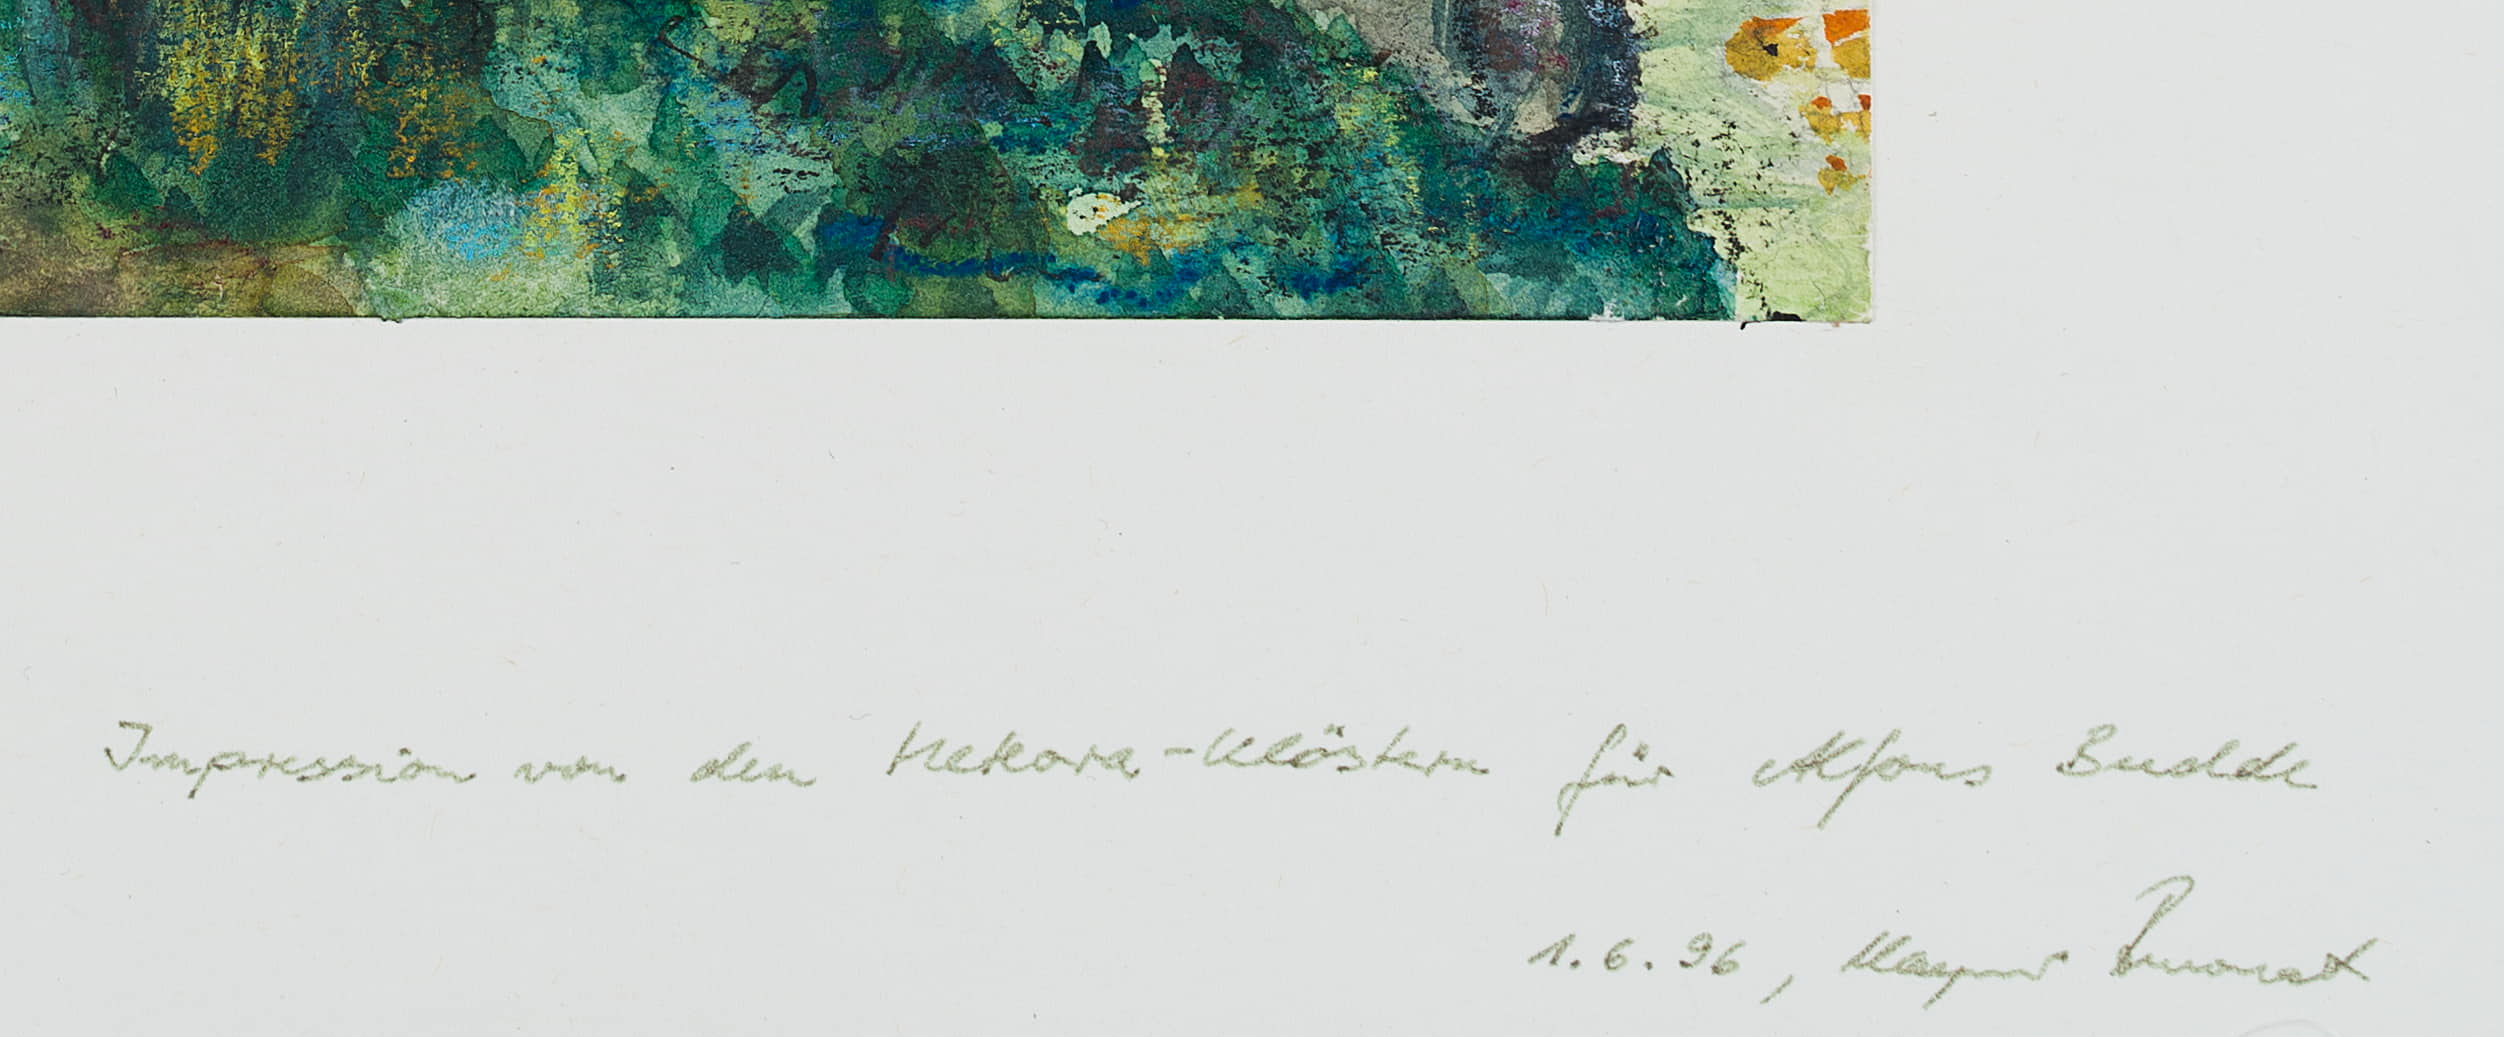 Impression von den Metéora-Klöstern für Alfons Budde
1.6.96,